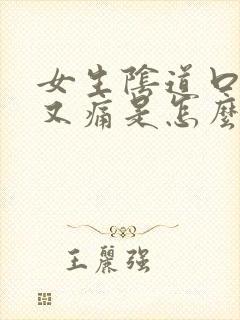 女生陰道口
又痛是怎麼
王麗强